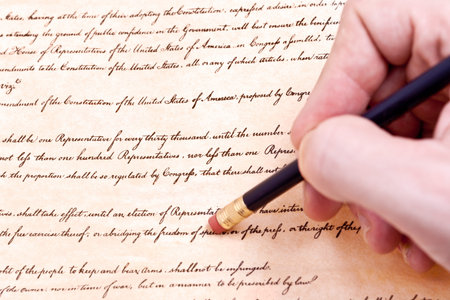 States, having at the time of their adopting the Constitution, expressed a desire, in order to
extending the ground of public confidence in the Government, will best insure the beneficent
House of Representatives of the United States of America, in Congress assembled, two
amendments to the Constitution of the United States, all, or any of which articles, when rati
viz.t
amendment of the Constitution of the United States of America, proposed by Congre
shall be one Representative for every thirty thousand, until the number s
not less than one hundred Representatives, nor less than one Represe
the proportion shall be so regulated by Congress, that there shall not
tives, shall take effect, until an election of Representat have interv
the free exercise thereof; or abridging the freedom of spee or of the press, or the right of the p
ght of the people to keep and bear Arms, shall not be infringed.
of the Owner, nor in time of war, but in a manner to be prescribed by law.